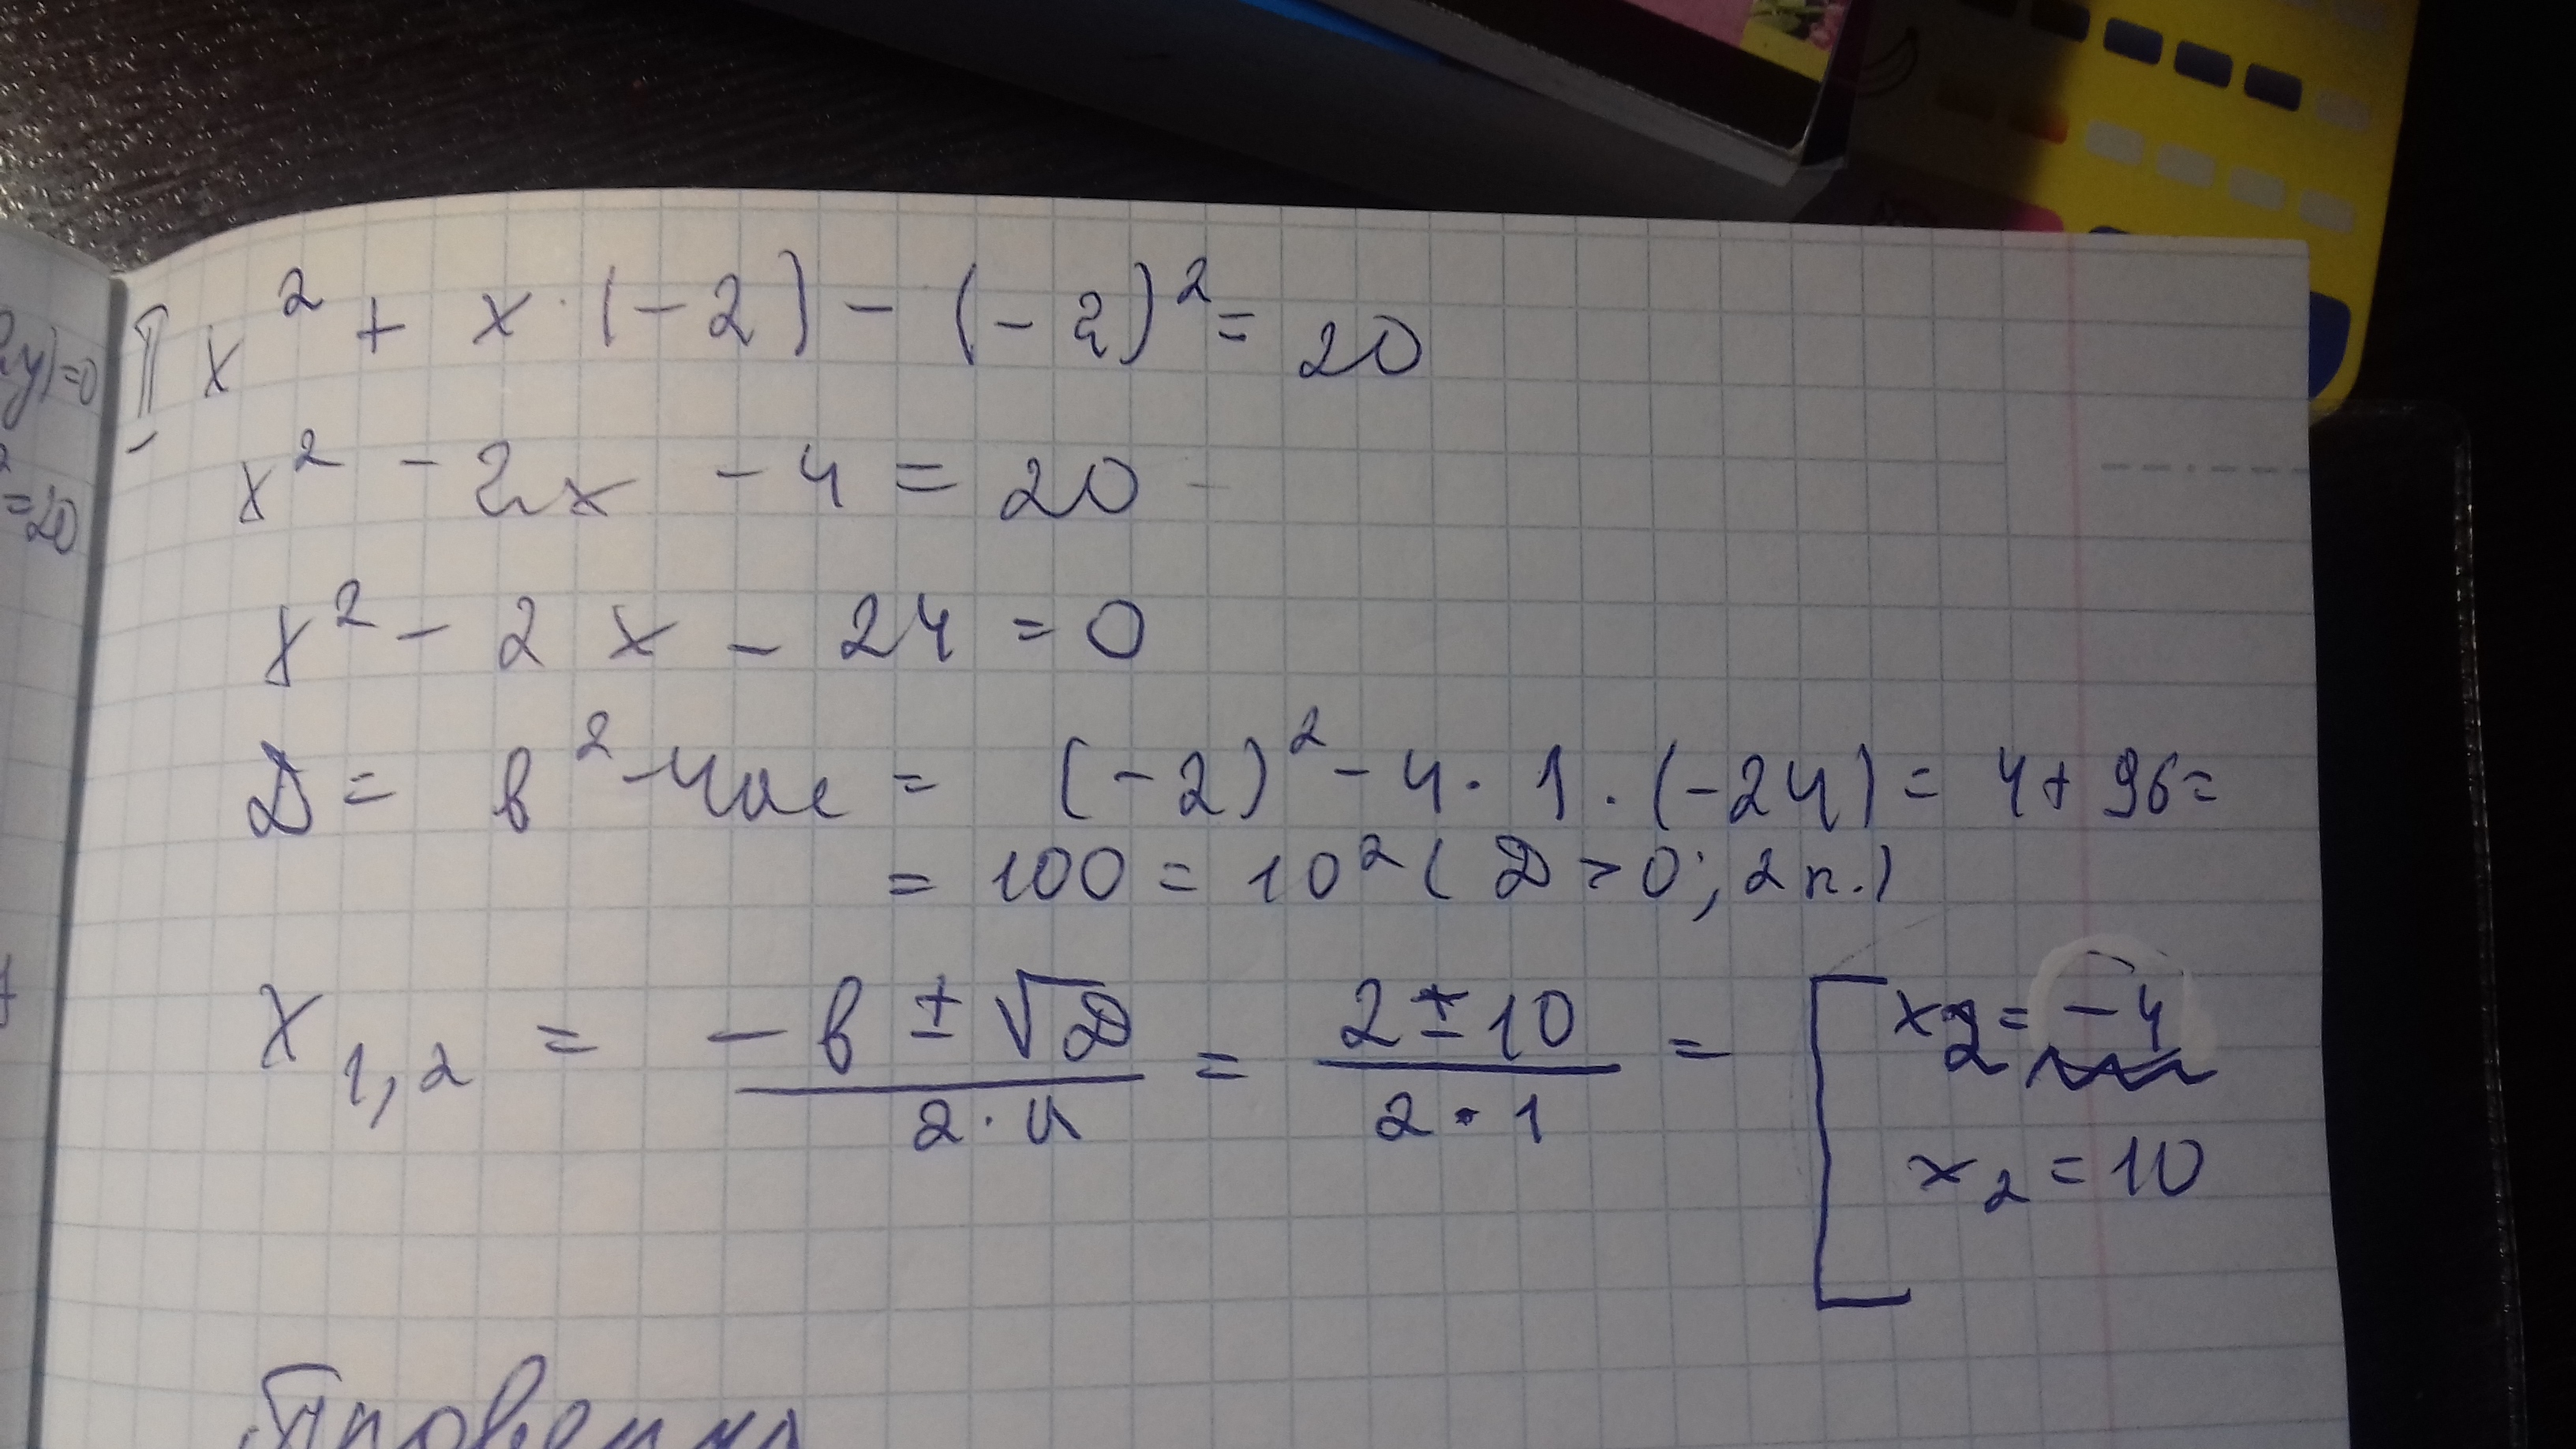 2y)=0
2
=20
II x² + x · (-2) - (-2)² = 20
x² - 2x - 4 = 20
x² - 2x - 24 = 0
D = b² - 4ac = (-2)² - 4 · 1 · (-24) = 4 + 96 =
= 100 = 10² ( D > 0; 2 к.)
x 1,2 = (-b ± √D) / (2 · a) = (2 ± 10) / (2 · 1) = [ x 2 = -4
x 2 = 10
Проверка